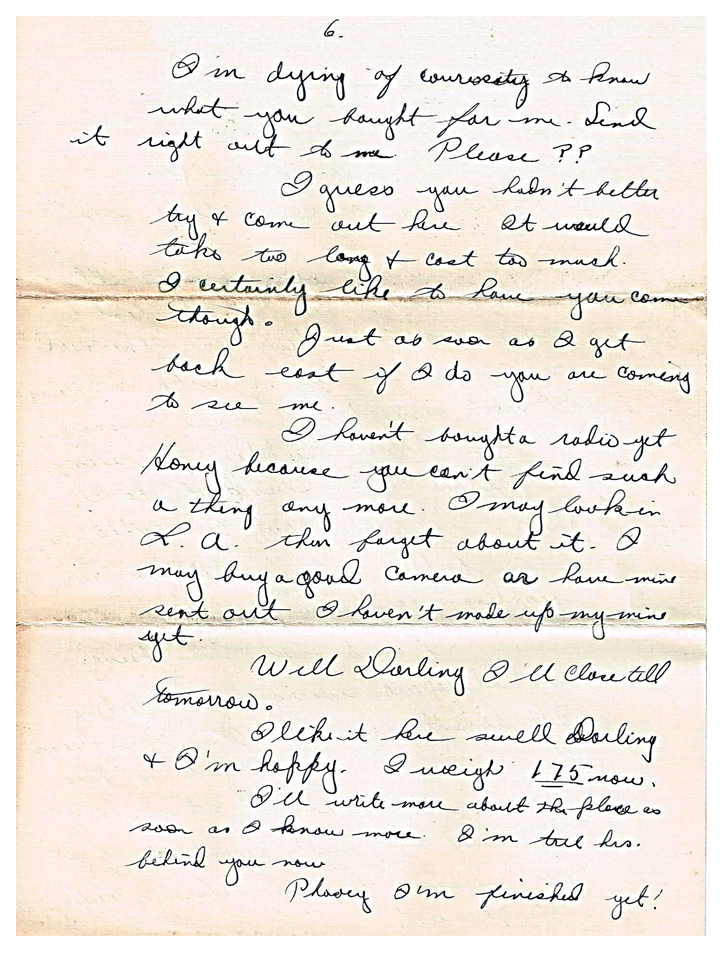 6.
I'm dying of couriosity to know
what you bought for me. Send
it right out to me. Please ??
I guess you hadn't better
try & come out here. It would
take too long & cost too much.
I certainly like to have you come
though. Just as soon as I get
back east if I do you are coming
to see me.
I haven't bought a radio yet
Honey because you can't find such
a thing any more. I may look in
L. A. then forget about it. I
may buy a good camera or have mine
sent out I haven't made up my mine
yet.
Well Darling I'll close till
tomorrow.
I like it here swell Darling
& I'm happy. I weigh 175 now.
I'll write more about the place as
soon as I know more. I'm hrs.
behind you now
Phooey I'm finished yet!